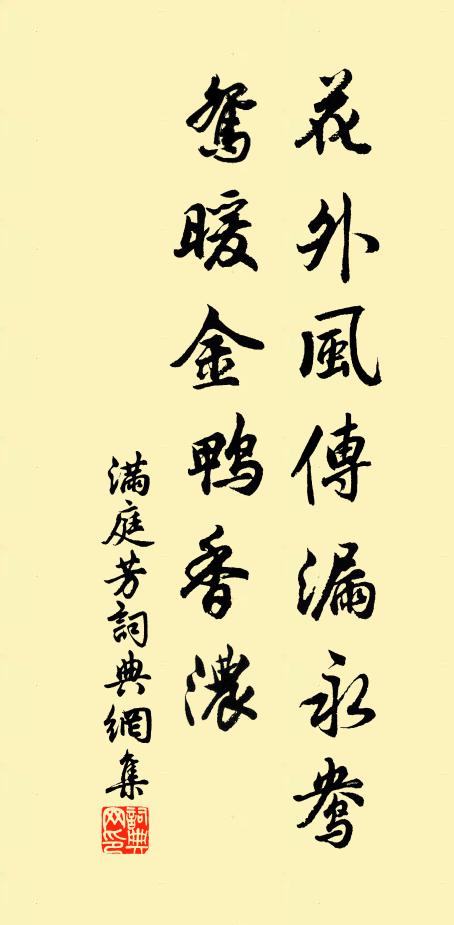 花外風傳漏永鴦
鴛暖金鴨香濃
滿庭芳詞典網集
詞典网印